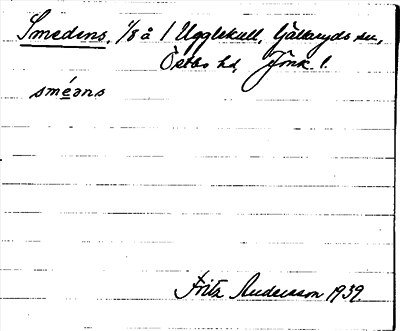 Smedens, 1/8 å 1 Ugglekull, Gällaryds sn,
Östbo hd, Jönk. l.
sméəns
Fritz Andersson 1939.